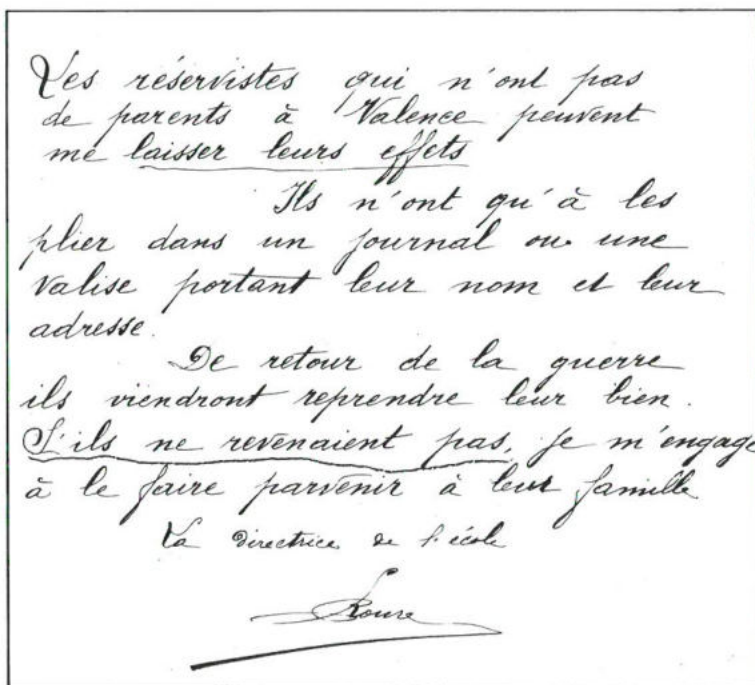 Les réservistes qui n'ont pas
de parents à Valence peuvent
me laisser leurs effets
Ils n'ont qu'à les
plier dans un journal ou une
valise portant leur nom et leur
adresse.
De retour de la guerre
ils viendront reprendre leur bien.
S'ils ne revenaient pas, je m'engage
à le faire parvenir à leur famille
La directrice de l'école
Roure